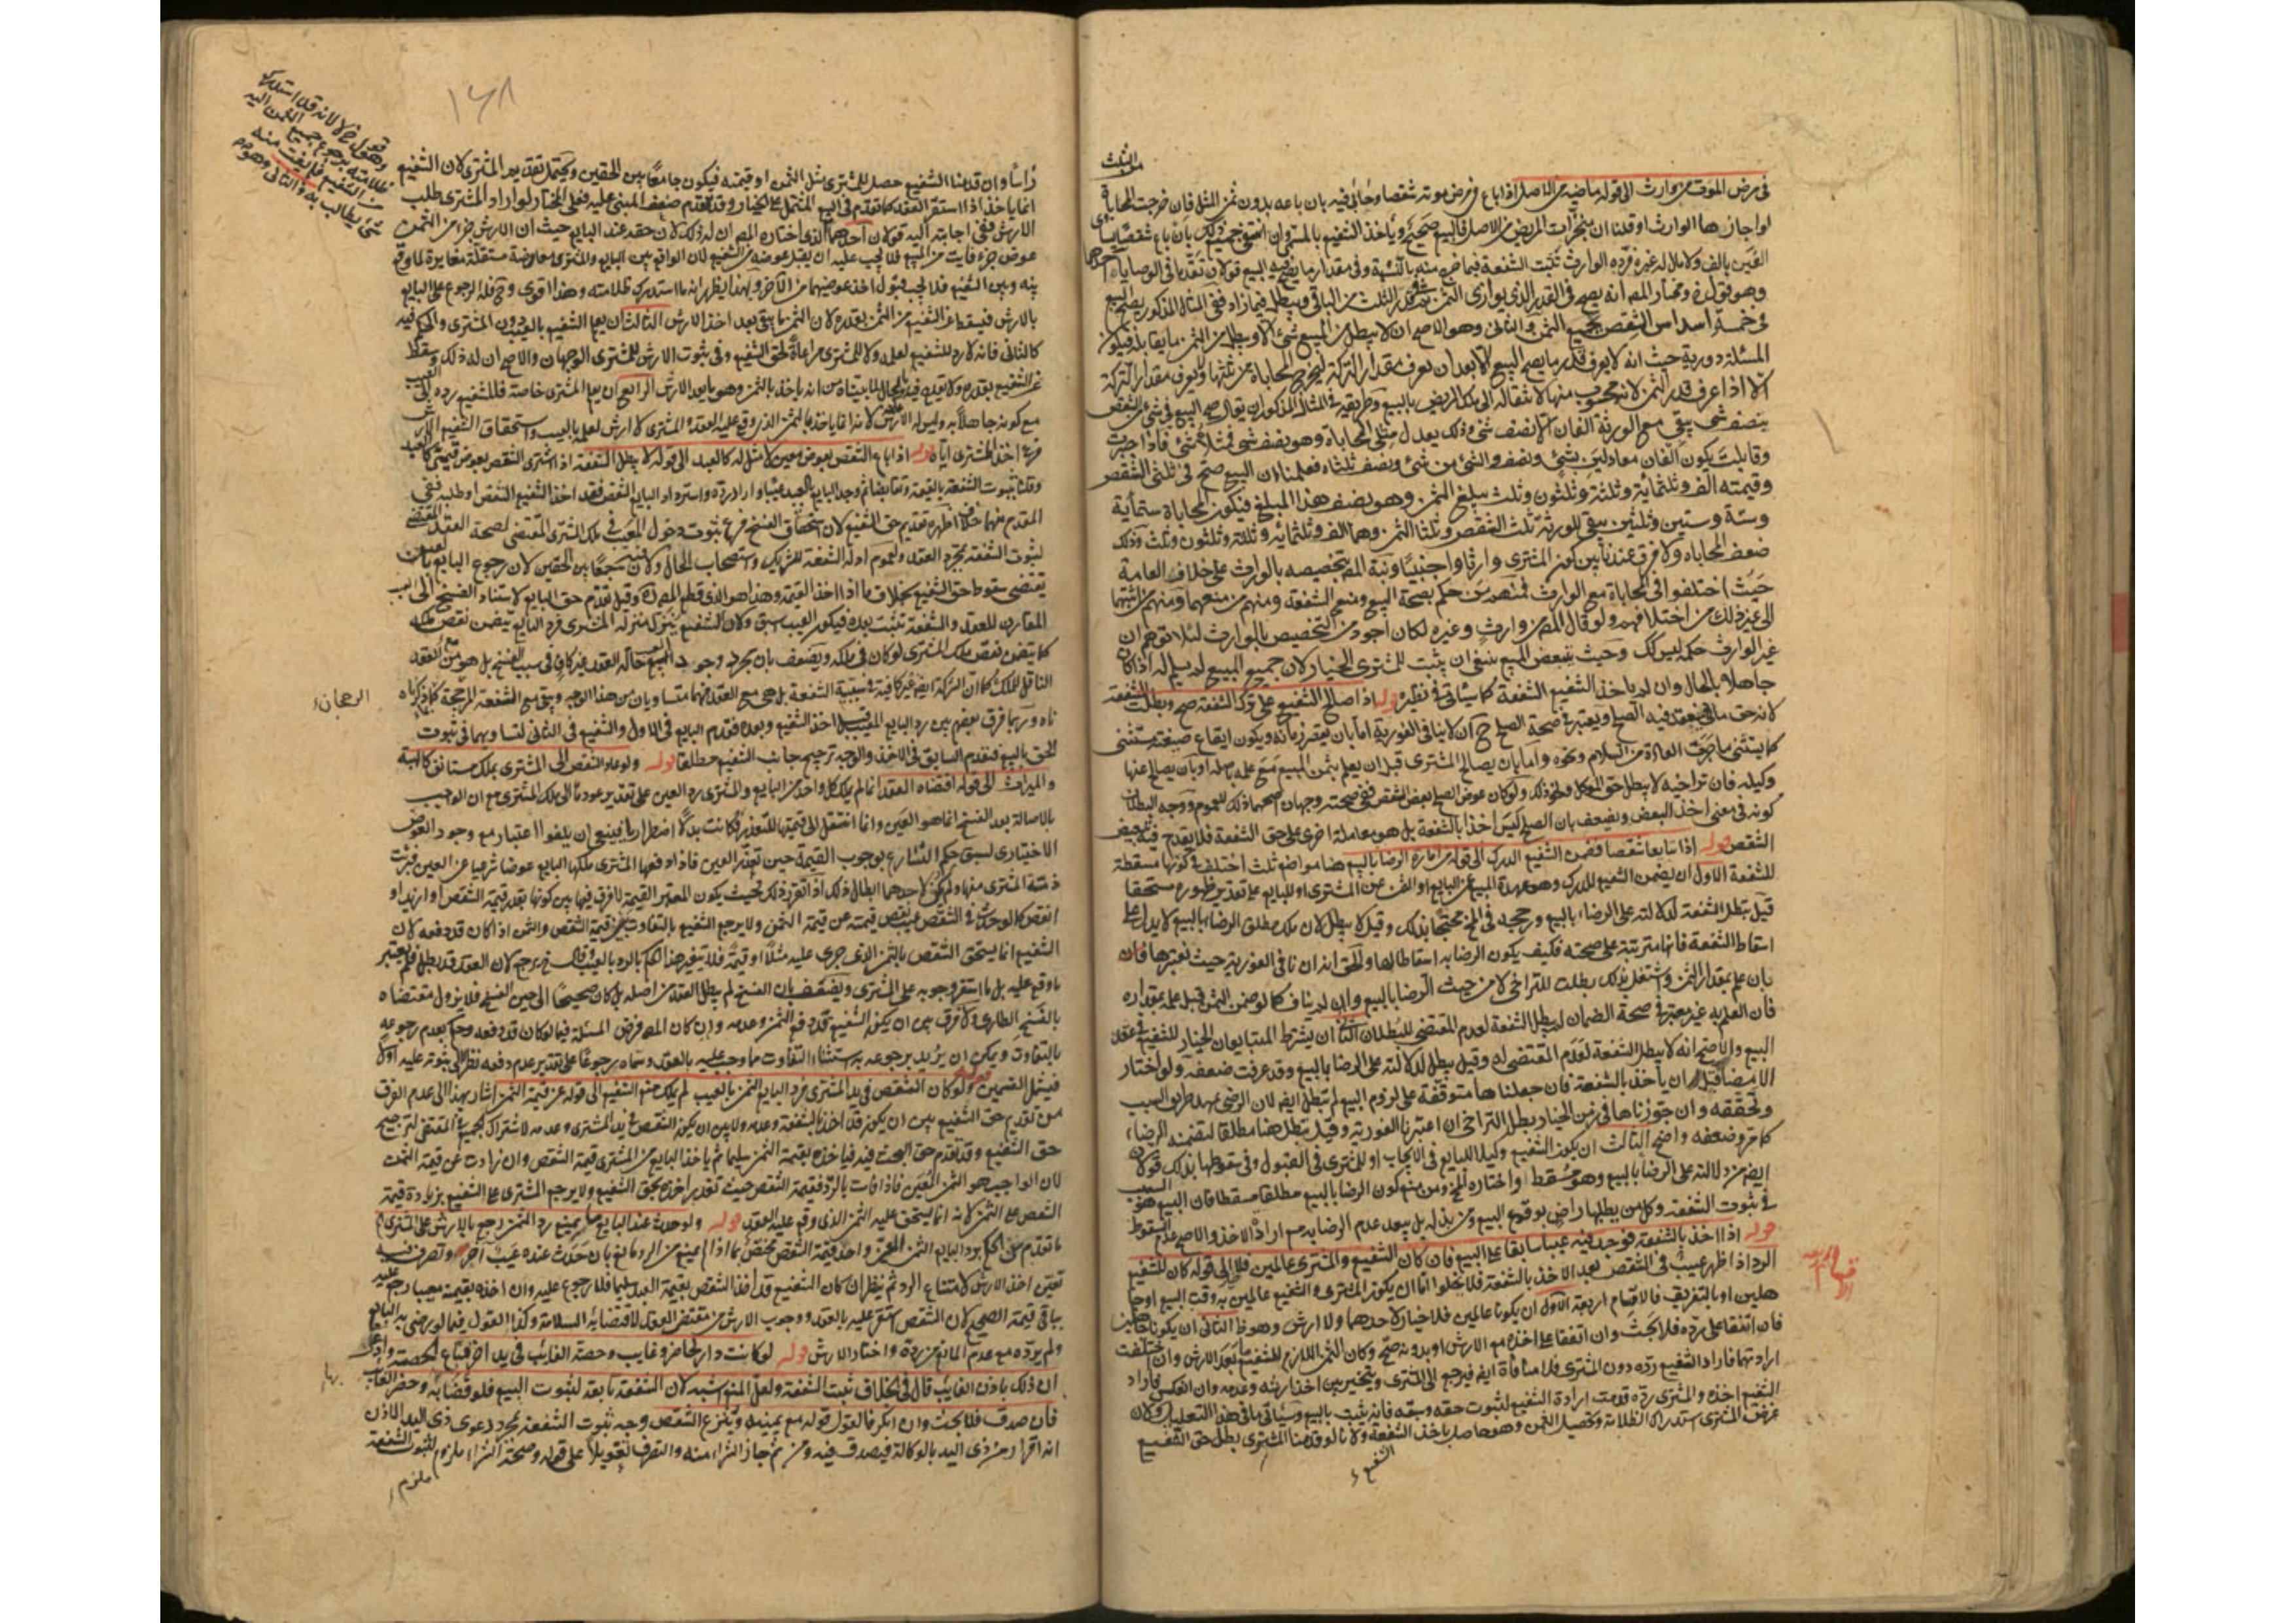 من الثلث
في مرض الموت من وارث الى قوله ماضيه من الاصل اذا باع في مرض موته شقصا وحابى فيه بان باعه بدون ثمن المثل فان خرجت المحاباة
او اجازها الوارث او قلنا ان منجزات المريض من الاصل فالبيع صحيح ويأخذ الشفيع بالمسمى وان انتفى جميع ذلك بان باع شقصا يساوي
الفين بالف ولا مال له غيره فرده الوارث ثبتت الشفعة فيما صح منه بالنسبة وفي مقدار ما يصح فيه البيع قولان تقدما في الوصايا احدهما
وهو قول ومختار المصـ انه يصح في القدر الذي يوازي الثمن وقدر الثلث من الباقي ويبطل فيما زاد ففي المثال المذكور يصح البيع
في خمسة اسداس الشقص بجميع الثمن والثاني وهو الاصح ان لا يبطل من المبيع شيء الا ويبطل من الثمن ما يقابله فيكون
المسئلة دورية حيث انه لا يعرف قدر ما يصح البيع الا بعد ان يعرف مقدار التركة ليخرج المحاباة من ثلثها ولا يعرف مقدار التركة
الا اذا عرف قدر الثمن لانه محسوب منها لانتقاله الى ملك المريض بالبيع وطريقه في المثال المذكور ان يقال صح البيع في شيء من الشقص
بنصف شيء يبقى مع الورثة الفان الا نصف شيء وذلك يعدل مثلي المحاباة وهو نصف شيء فمثلاه شيء فاذا جبرت
وقابلت يكون الفان معادلين شيء ونصف والشيء من شيء ونصف ثلثاه فعلمنا ان البيع صح في ثلثي الشقص
وقيمته الف وثلثماية وثلثة وثلثون وثلث بثلثي الثمن وهو نصف هذا المبلغ فيكون المحاباة ستماية
وستة وستين وثلثين يبقى للورثة ثلث الشقص وثلثا الثمن وهما الف وثلثمايه وثلاثة وثلثون وثلث وذلك
ضعف المحاباه ولا فرق عندنا بين كون المشتري وارثا او اجنبيا ونبه المصـ بتخصيصه بالوارث على خلاف العامة
حيث اختلفوا في المحاباة مع الوارث فمنهم من حكم بصحة البيع ومنع الشفعة ومنهم من منعهما ومنهم من اثبتهما
الى غير ذلك من اختلافهم ولو قال المصـ من وارث وغيره لكان اجود من التخصيص بالوارث لئلا توهم ان
غير الوارث حكمه ليس كك وحيث تبعض المبيع ينبغي ان يثبت للمشتري الخيار لان جميع المبيع لم يسلم له اذا كان
جاهلا بالحال وان لم ياخذ الشفيع الشفعة كما سيأتي في نظيره قوله اذا صالح الشفيع على ترك الشفعة صح وبطلت الشفعة
لانه حق مالي فينعقد فيه الصلح ويعتبر في صحة الصلح ح ان لا ينافي الفورية اما بان يقصر زمانه ويكون ايقاع صيغته مستثنى
كما يستثنى ما جرت العادة من السلام ونحوه واما بان يصالح المشتري قبل ان يعلم بثمن المبيع مع علمه باصله او بان يصالح عنها
وكيله فان تراخيه لا يبطل حق الموكل ونحو ذلك ولو كان عوض الصلح بعض الشقص ففي صحته وجهان اصحهما ذلك للعموم ووجه البطلان
كونه في معنى اخذ البعض ويضعف بان الصلح ليس اخذا بالشفعة بل هو معاملة اخرى على حق الشفعة فلا يقدح فيه تبعيض
الشقص قوله اذا تبايعا شقصا فضمن الشفيع الدرك الى قوله من امارة الرضا بالبيع هنا مواضع ثلث اختلف في كونها مسقطة
للشفعة الاول ان يضمن الشفيع الدرك وهو عهدة المبيع عن البايع او الثمن عن المشتري او للبايع على تقدير ظهوره مستحقا
قيل تبطل الشفعة لدلالته على الرضاء بالبيع ورجحه في المخ محتجا بذلك وقيل لا يبطل لان ملك مطلق الرضا بالبيع لا يدل على
اسقاط الشفعة فانها مترتبة على صحته فكيف يكون الرضا به اسقاطا لها والحق انه ان نافى الفورية حيث نعتبرها فان
بان علم بمقدار الثمن واشتغل بذلك بطلت للتراخي لا من حيث الرضا بالبيع وان لم يناف كما لو ضمن الثمن قبل علمه بمقداره
فان العلم به غير معتبر في صحة الضمان لم يبطل الشفعة لعدم المقتضي للبطلان الثاني ان يشترط المتبايعان الخيار للشفيع في عقد
البيع والاصح انه لا يبطل الشفعة لعدم المقتضي له وقيل يبطل لدلالته على الرضا بالبيع وقد عرفت ضعفه ولو اختار
الامضا قبل ان يأخذ بالشفعة فان جعلناها متوقفة على لزوم البيع لم تبطل ايضا لان الرضى تمهيد طريق السبب
وتحققه وان جوزناها في زمن الخيار بطل للتراخي ان اعتبرنا الفورية وقيل تبطل هنا مطلقا لتضمنه الرضاء
كما مر وضعفه واضح الثالث ان يكون الشفيع وكيلا للبايع في الايجاب او للمشتري في القبول وفي سقوطها بذلك قولان
ايضا من دلالته على الرضا بالبيع وهو مسقط واختاره المخ ومن منع كون الرضا بالبيع مطلقا مسقطا فان البيع هو السبب
في ثبوت الشفعة وكل من يطلبها راض بوقوع البيع ومن يذله بل يبعد عدم الرضا به مع ارادة الاخذ والاصح عدم السقوط
قوله اذا اخذ بالشفعة فوجد فيه عيبا سابقا على البيع فان كان الشفيع والمشتري عالمين فلا الى قوله كان للشفيع
الرد اذا ظهر عيب في الشقص بعد الاخذ بالشفعة فلا يخلو اما ان يكون المشتري والشفيع عالمين به وقت البيع او جا
هلين او بالتفريق فالاقسام اربعة الاول ان يكونا عالمين فلا خيار لاحدهما ولا ارش وهو ظ الثاني ان يكونا جاهلين
فان اتفقا على رده فلا بحث وان اتفقا على اخذه مع الارش او بدونه صح وكان الثمن اللازم للشفيع بعد الارش وان اختلفت
ارادتهما فاراد الشفيع رده دون المشتري فلا منافاة ايضا فيرجع الى المشتري ويتخير بين اخذ ارشه وعدمه وان انعكس فاراد
الشفيع اخذه والمشتري رده قدمت ارادة الشفيع لثبوت حقه وسبقه فانه يثبت بالبيع وسيأتي ما في هذا التعليل ولان
غرض المشتري استدراك الظلامة وتحصيل الثمن وهو حاصل باخذ الشفعة ولانا لو قدمنا المشتري بطل حق الشفيع
الشفيع
١٦٨
رأسا وان قدمنا الشفيع حصل للمشتري مثل الثمن او قيمته فيكون جامعا بين الحقين ويحتمل تقديم المشتري لان الشفيع
انما ياخذ اذا استقر العقد كما تقدم في البيع المشتمل على الخيار وقد تقدم ضعف المبنى عليه فعلى المختار لو اراد المشتري طلب
الارش ففي اجابته اليه قولان احدهما الذي اختاره المصـ ان له ذلك لان حقه عند البايع حيث ان الارش جزء من الثمن
عوض جزء فايت من المبيع فلا يجب عليه ان يقبل عوضه من الشفيع لان الواقع بين البايع والمشتري معاوضة مستقلة مغايرة لما وقع
بينه وبين الشفيع فلا يجب قبول اخذ عوضيهما من الآخر وبهذا يظهر انه ما استدرك ظلامته وهذا اقوى وح فله الرجوع على البايع
بالارش فيسقط عن الشفيع من الثمن بقدره لان الثمن ما يبقى بعد اخذ الارش الثالث ان يعلم الشفيع بالعيب دون المشتري والحكم فيه
كالثاني فانه لا رد للشفيع لعلمه ولا للمشتري مراعاة لحق الشفيع وفي ثبوت الارش للمشتري الوجهان والاصح ان له ذلك وسقط
عن الشفيع بقدره ولا يقدح فيه علمه بالحال لما بيناه من انه ياخذ بالثمن وهو ما بعد الارش الرابع ان يعلم المشتري خاصة فللشفيع رده بالعيب
مع كونه جاهلا به وليس له الارش لانه انما ياخذ بالثمن الذي وقع عليه العقد والمشتري لا ارش لعلمه بالعيب واستحقاق الشفيع الارش
فرع اخذ المشتري اياه قوله اذا باع الشقص بعوض معين لا مثل له كالعبد الى قوله لا يبطل الشفعة اذا اشترى الشقص بعوض قيمي كالعبد
وقلنا بثبوت الشفعة بالقيمة وتقابضا ثم وجد البايع بالعبد عيبا واراد رده واسترداد البايع الشقص فقد اخذ الشفيع الشقص او طلبه ففي
المقدم منهما خلاف اظهره تقديم حق الشفيع لان استحقاق الفسخ فرع ثبوت دخول المعيب في ملك المشتري المقتضي لصحة العقد المقتضي
لثبوت الشفعة بمجرد العقد ولعموم ادلة الشفعة للشريك واستصحاب الحال ولان فيه جمعا بين الحقين لان رجوع البايع بالعين
يقتضي سقوط حق الشفيع بخلاف ما اذا اخذ القيمة وهذا هو الذي قطع المصـ به وقيل يقدم حق البايع لاستناد الفسخ الى العيب
المقارن للعقد والشفعة تثبت بعده فيكون العيب اسبق ولان الشفيع ينزل منزلة المشتري فرد البايع يتضمن نقض ملكه
كما يتضمن نقض ملك المشتري لو كان في ملكه ويضعف بان مجرد وجود العيب حالة العقد غير كاف في سببية الفسخ بل هو مع العقد
الناقل للملك كما ان الشركة ايضا غير كافية في سببية الشفعة بل هي مع العقد فهما متساويان من هذا الوجه ويبقى مع الشفعة المرجحة كما ذكرناه
الرجحان
ناه وربما فرق بعضهم بين رد البايع المعيب قبل اخذ الشفيع وبعده فقدم البايع في الاول والشفيع في الثاني لتساويهما في ثبوت
الحق بالبيع فيقدم السابق في الاخذ والوجه ترجيح جانب الشفيع مطلقا قوله ولو عاد الشقص الى المشتري بملك مستانف كالهبة
والميراث الى قوله اقتضاه العقد انما لم يملك كل واحد من البايع والمشتري رد العين على تقدير عودها الى ملك المشتري مع ان الواجب
بالاصالة بعد الفسخ انما هو العين وانما انتقل الى قيمتها للتعذر فكانت بدلا اضطراريا فينبغي ان يلغو اعتباره مع وجود العوض
الاختياري لسبق حكم الشارع بوجوب القيمة حين تعذر العين فاذا دفعها المشتري ملكها البايع عوضا شرعيا عن العين فبرئت
ذمة المشتري منها ولم يكن لاحدهما ابطال ذلك اذا تقرر ذلك فحيث يكون المعتبر القيمة لا فرق فيها بين كونها بقدر قيمة الشقص او ازيد او
انقص كما لو حدث في الشقص عيب نقص قيمته عن قيمة الثمن ولا يرجع الشفيع بالتفاوت بين قيمة الشقص والثمن اذا كان قد دفعه لان
الشفيع انما يستحق الشقص بالثمن الذي جرى عليه مثلا او قيمة فلا يتغير هذا الحكم بالرد بالعيب وقال ... يرجع لان العقد قد بطل فلم يعتبر
ما وقع عليه بل ما استقر وجوبه على المشتري ويضعف بان الفسخ لم يبطل العقد من اصله بل كان صحيحا الى حين الفسخ فلا يزول مقتضاه
بالفسخ الطاري ولا فرق بين ان يكون الشفيع قد دفع الثمن وعدمه وان كان المصـ فرض المسئلة فيما لو كان قد دفعه وحكم بعدم رجوعه
بالتفاوت ويمكن ان يريد برجوعه به استثناء التفاوت مما وجب عليه بالعقد وسماه رجوعا على تقدير عدم دفعه نظرا الى ثبوته عليه اولا
فيشمل القسمين قوله ولو كان الشقص في يد المشتري فرد البايع الثمن بالعيب لم يملك منع الشفيع الى قوله عن قيمة الثمن اشار بهذا الى عدم الفرق
من تقديم حق الشفيع بين ان يكون قد اخذ بالشفعة وعدمه ولا بين ان يكون الشقص في يد المشتري وعدمه لاشتراك الجميع في المقتضي لترجيح
حق الشفيع وقد تقدم حق البحث فيه فياخذه بقيمة الثمن سليما ثم ياخذ البايع من المشتري قيمة الشقص وان زادت عن قيمة الثمن
لان الواجب هو الثمن المعين فاذا فات بالرد فقيمة الشقص حيث تعذر اخذه بحق الشفيع ولا يرجع المشتري على الشفيع بزيادة قيمة
الشقص على الثمن لانه انما يستحق عليه الثمن الذي وقع عليه العقد قوله ولو حدث عند البايع ما يمنع رد الثمن رجع بالارش على المشتري
ما تقدم من الحكم برد البايع الثمن المعين واخذ قيمة الشقص مختص بما اذا لم يمنع من الرد مانع بان حدث عنده عيب آخر او تصرف فيه
تعين اخذ الارش لامتناع الرد ثم ينظر ان كان الشفيع قد اخذ الشقص بقيمة العبد سليما فلا رجوع عليه وان اخذه بقيمته معيبا رجع عليه
بباقي قيمة الصحيح لان الشقص استقر عليه بالعقد ووجوب الارش من مقتضى العقد لاقتضايه السلامة وكذا القول فيما لو رضي به البايع
ولم يرده مع عدم المانع من رده واختار الارش قوله لو كانت دار لحاضر وغايب وحصة الغايب في يد آخر فباع الحصة وادعى
ان ذلك باذن الغايب قال في الخلاف تثبت الشفعة ولعل المنع اشبه لان الشفعة تابعة لثبوت البيع فلو قضا به وحضر الغايب
فان صدق فلا بحث وان انكر فالقول قوله مع يمينه وينتزع الشقص وجه ثبوت الشفعة بمجرد دعوى ذي اليد الاذن
انه اقرار من ذي اليد بالوكالة فيصدق فيه ومن ثم جاز الشراء منه والتصرف تعويلا على قوله وصحة الشراء ملزوم لثبوت الشفعة
ملزوم